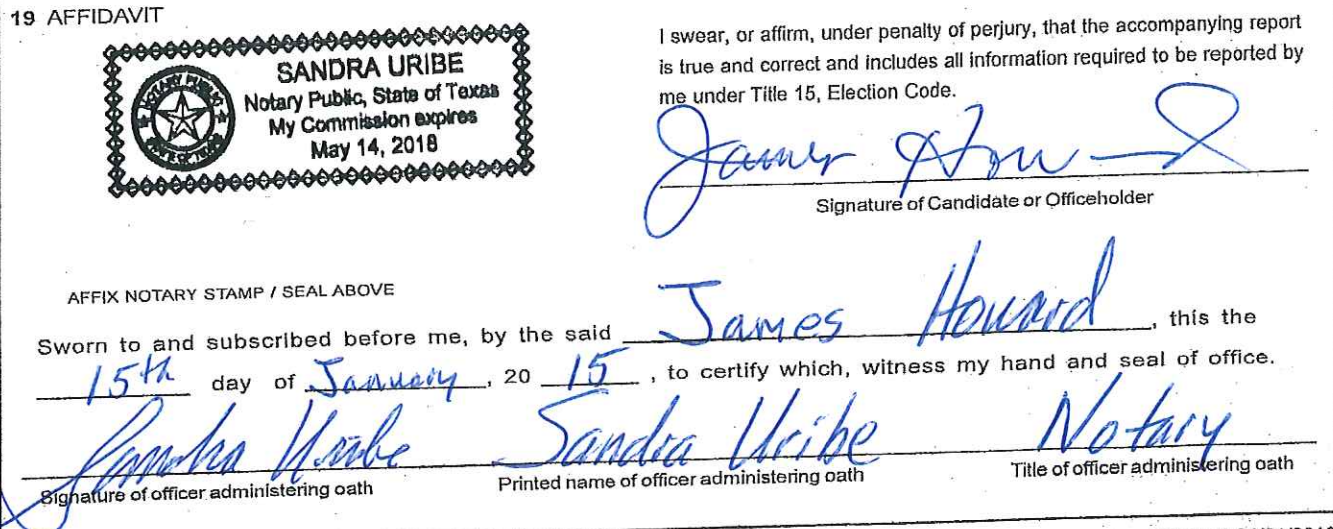 19 AFFIDAVIT
SANDRA URIBE
Notary Public, State of Texas
My Commission expires
May 14, 2018
I swear, or affirm, under penalty of perjury, that the accompanying report
is true and correct and includes all information required to be reported by
me under Title 15, Election Code.
James Howard
Signature of Candidate or Officeholder
AFFIX NOTARY STAMP / SEAL ABOVE
Sworn to and subscribed before me, by the said James Howard, this the
15th day of January, 20 15, to certify which, witness my hand and seal of office.
Sandra Uribe Sandra Uribe Notary
Signature of officer administering oath Printed name of officer administering oath Title of officer administering oath